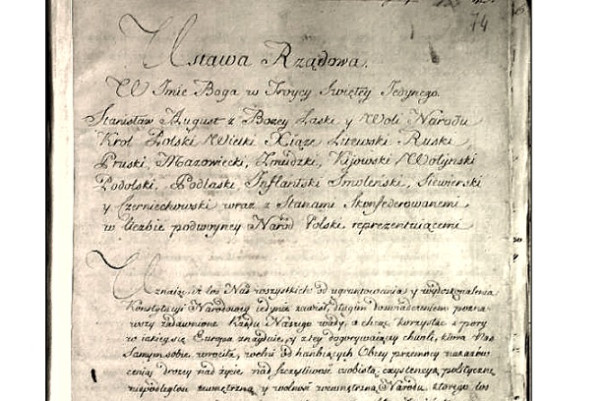 74
Ustawa Rządowa.
W Imie Boga w Troycy Swiętey Jedynego.
Stanisław August z Bożey Łaski y Woli Narodu
Krol Polski Wielki Xiąże Litewski Ruski
Pruski, Mazowiecki, Żmudzki, Kijowski Wołyński
Podolski, Podlaski, Inflantski Smoleński, Siewierski
y Czerniechowski wraz z Stanami Skonfederowanemi
w liczbie podwoyney Narod Polski reprezentuiącemi
Uznaiąc, iż los Nas wszystkich od ugruntowania y wydoskonalenia
Konstytucyi Narodowey iedynie zawisł, długim doswiadczeniem pozna-
wszy zadawnione Rządu Naszego wady, a chcąc korzystać z pory
w iakiey się Europa znayduie, y z tey dogorywaiącey chwili, ktora Nas
Samym sobie wrociła, wolni od hanbiących Obcey przemocy nakazow
ceniąc drożey nad życie, nad szczęśliwość osobistą exystencyą polityczną
niepodległość zewnętrzną y wolność wewnętrzną Narodu, ktorego los